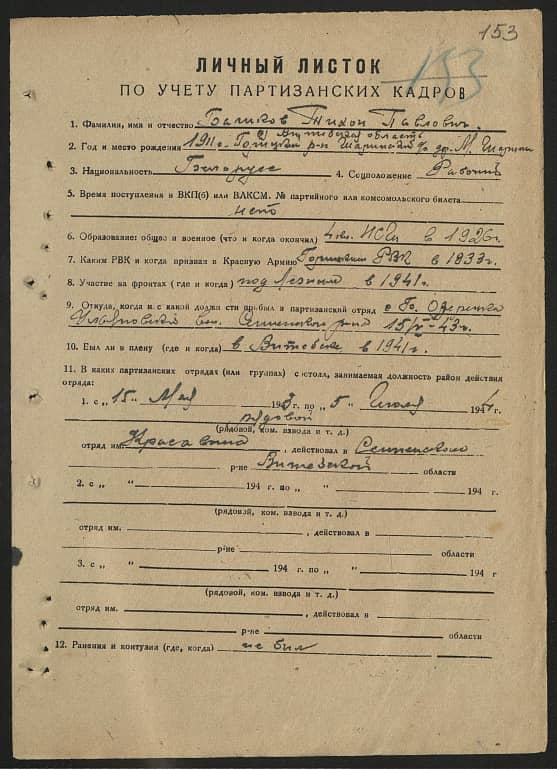 153
153
ЛИЧНЫЙ ЛИСТОК
ПО УЧЕТУ ПАРТИЗАНСКИХ КАДРОВ
1. Фамилия, имя и отчество Тихон Павлович.
Витебская область
2. Год и место рождения 1911 г. р-н
3. Национальность Белорус 4. Соцположение Рабочий
5. Время поступления в ВКП(б) или ВЛКСМ. № партийного или комсомольского билета
нет
6. Образование: общее и военное (что и когда окончил) 4 кл. в 1926 г.
7. Каким РВК и когда призван в Красную Армию РВК в 1933 г.
8. Участие на фронтах (где и когда) под в 1941 г.
9. Откуда, когда и с какой должности прибыл в партизанский отряд
15/V-43 г.
10. Был ли в плену (где и когда) в Витебске в 1941 г.
11. В каких партизанских отрядах (или группах) состоял, занимаемая должность район действия
отряда:
1. с „ 15 " Мая 1943 г. по „ 5 " Июля 1944 г.
рядовой
(рядовой, ком. взвода и т. д.)
отряд им. , действовал в Сенненском
р-не Витебской области
2. с „ " 194 г. по „ " 194 г.
(рядовой, ком. взвода и т. д.)
отряд им. , действовал в
р-не области
3. с „ " 194 г. по „ " 194 г
(рядовой, ком. взвода и т. д.)
отряд им. , действовал в
р-не области
12. Ранения и контузия (где, когда) не был